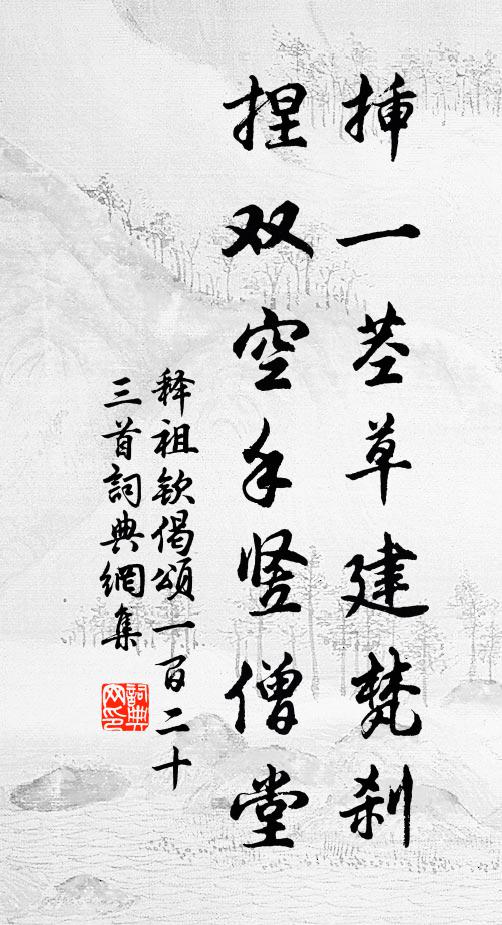 挿一茎草建梵刹
捏双空手竖僧堂
释祖钦偈頌一百二十
三首詞典網集
詞典
网印